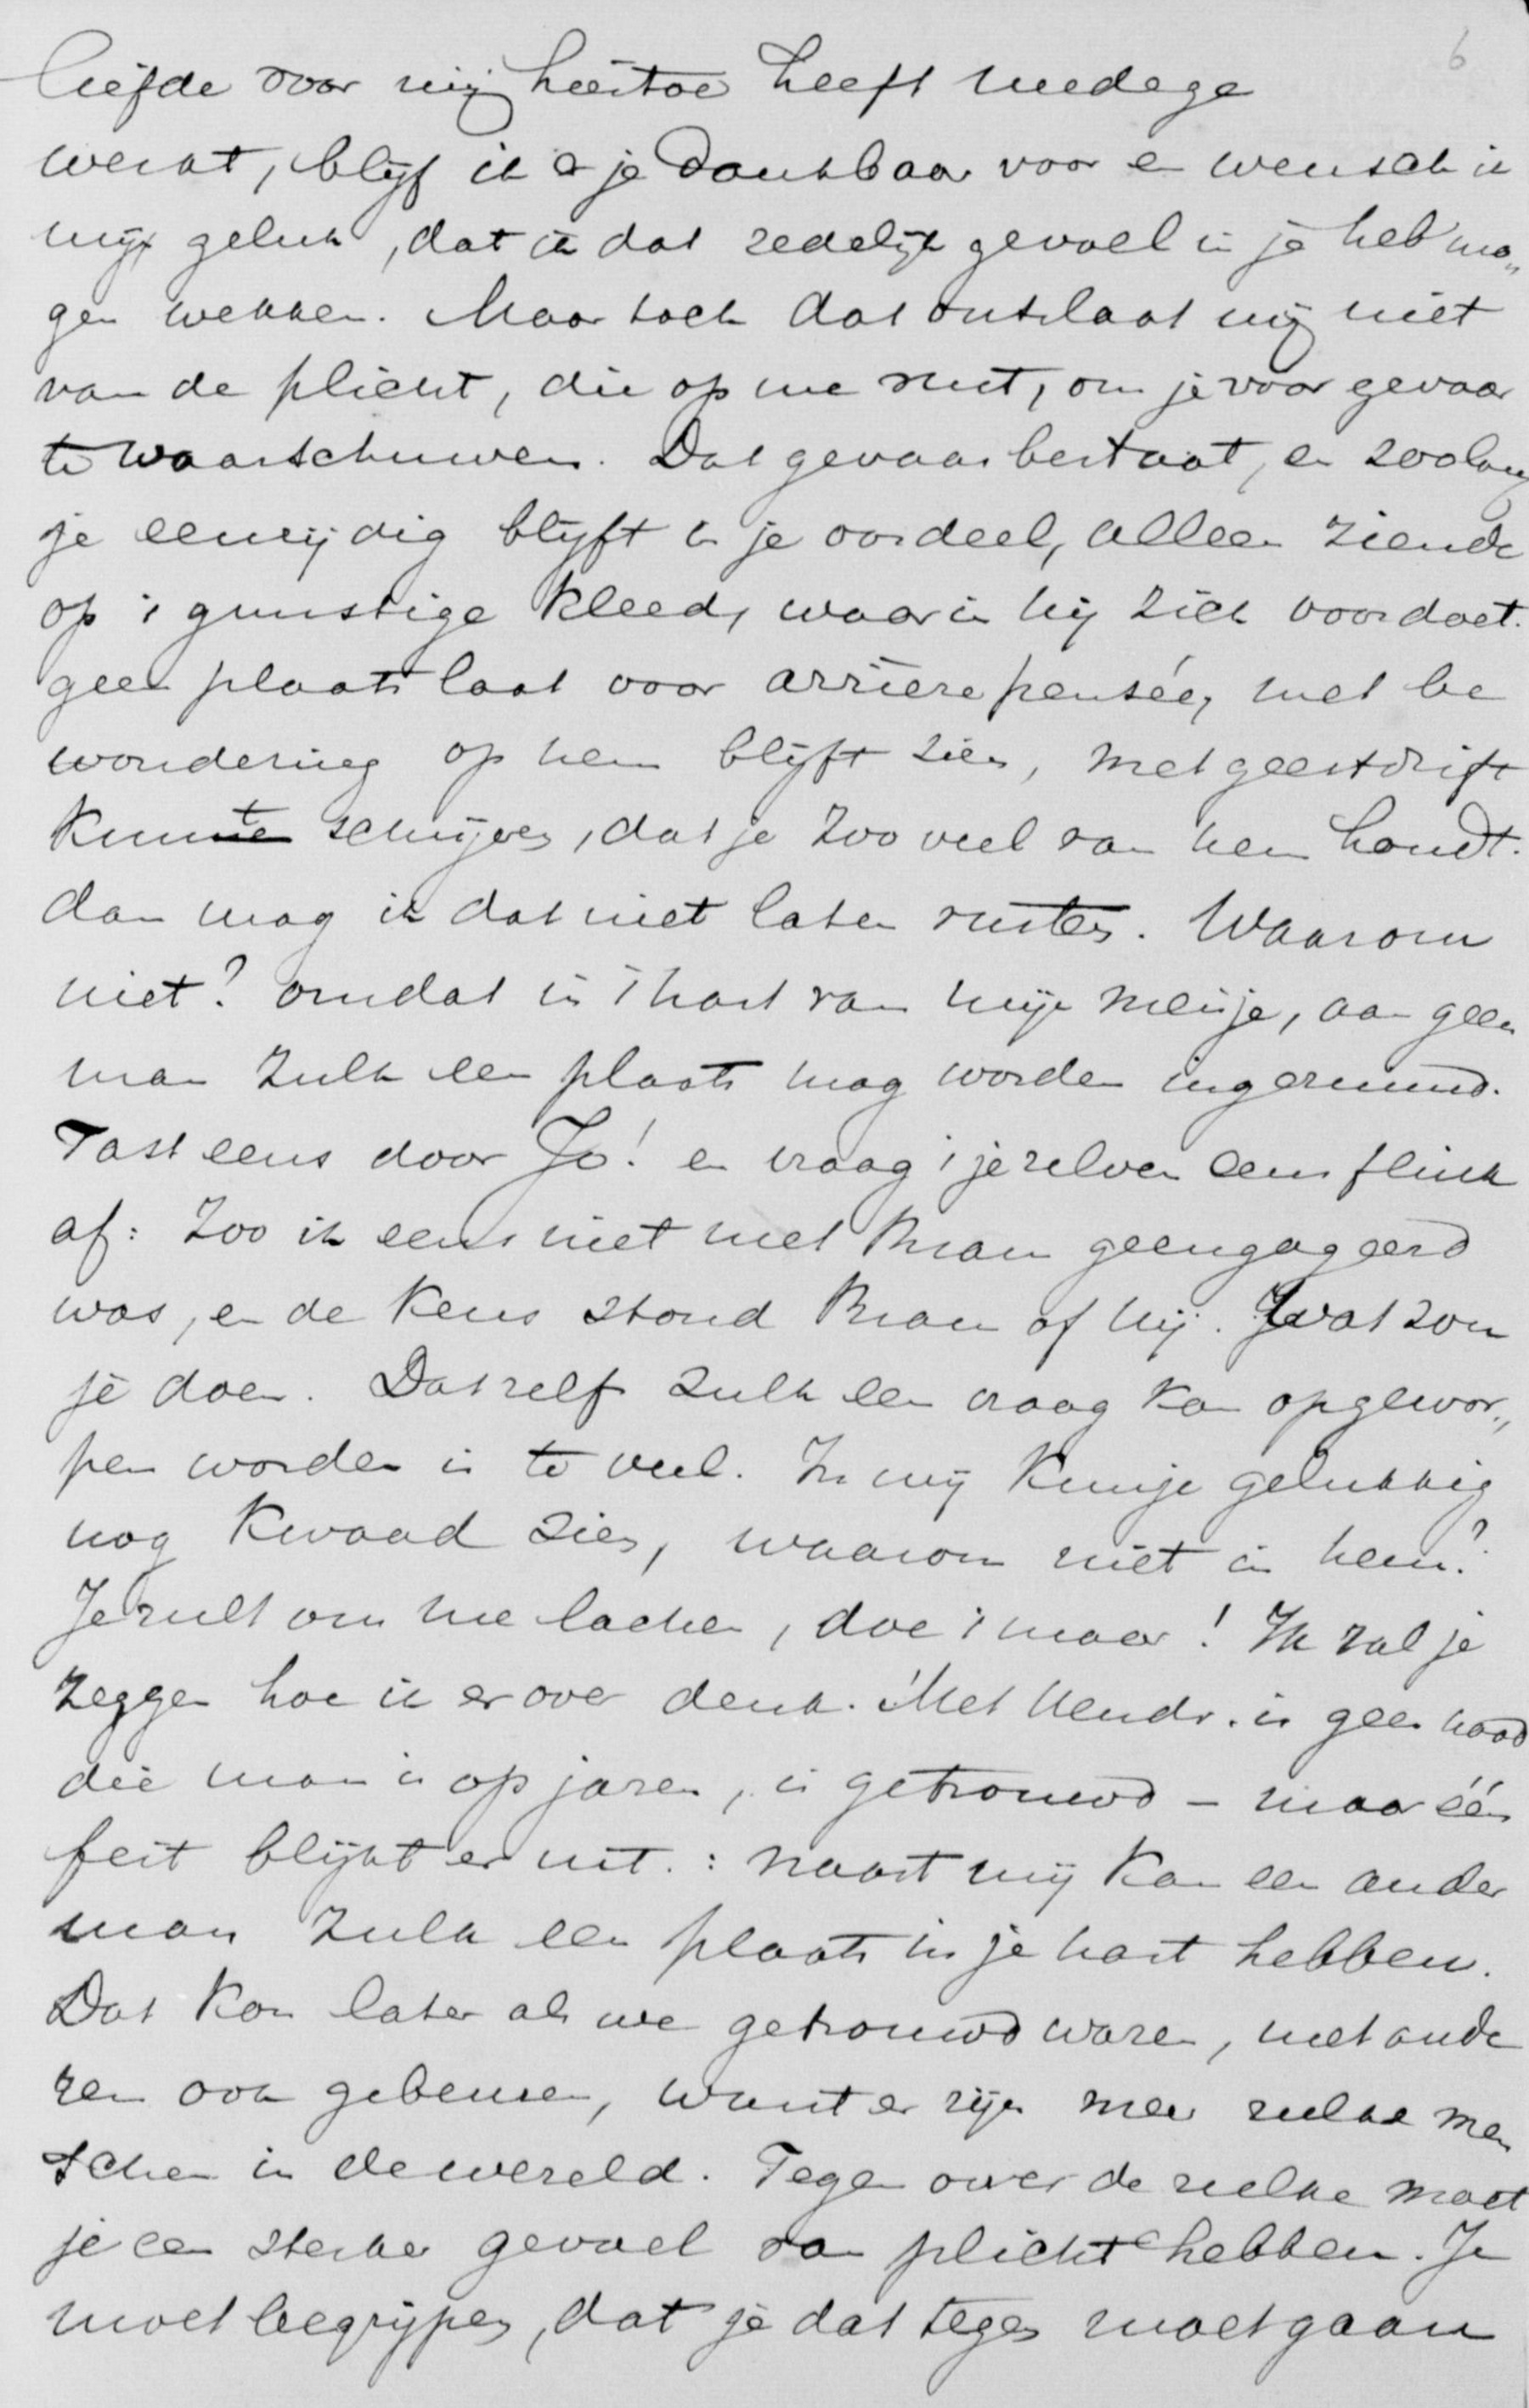 6
liefde voor mij hiertoe heeft medege
werkt, blijf ik je dankbaar voor en wensch ik
mij geluk, dat ik dat zedelijk gevoel in je heb mo„
gen wekken. Maar toch dat ontslaat mij niet
van de plicht, die op me rust, om je voor gevaar
te waarschuwen. Dat gevaar bestaat, en zoolang
je eenzijdig blijft in je oordeel, alleen ziende
op 't gunstige kleed, waarin hij zich voordoet.
geen plaats laat voor arrière pensée, met be
wondering op hem blijft zien, met geestdrift
kunt schrijven, dat je zoo veel van hem houdt.
dan mag ik dat niet laten rusten. Waarom
niet? omdat in 't hart van mijn meisje, aan geen
man zulk een plaats mag worden ingeruimd.
Tast eens door Jo! en vraag 't jezelven eens flink
af: Zoo ik eens niet met Bram geengageerd
was, en de keus stond Bram of hij. Wat zou
je doen. Dat zelfs zulk een vraag kan opgewor„
pen worden is te veel. In mij kun je gelukkig
nog kwaad zien, waarom niet in hem?
Je zult om me lachen, doe 't maar! Ik zal je
zeggen hoe ik er over denk. Met Hendr. is geen nood
die man is op jaren, is getrouwd – maar één
feit blijkt er uit.: naast mij kan een ander
man zulk een plaats in je hart hebben.
Dat kon later als we getrouwd waren, met ande
ren ook gebeuren, want er zijn meer zulke men
schen in de wereld. Tegen over de zulke moet
je een sterker gevoel van plicht hebben. Je
moet begrijpen, dat je dat tegen moet gaan